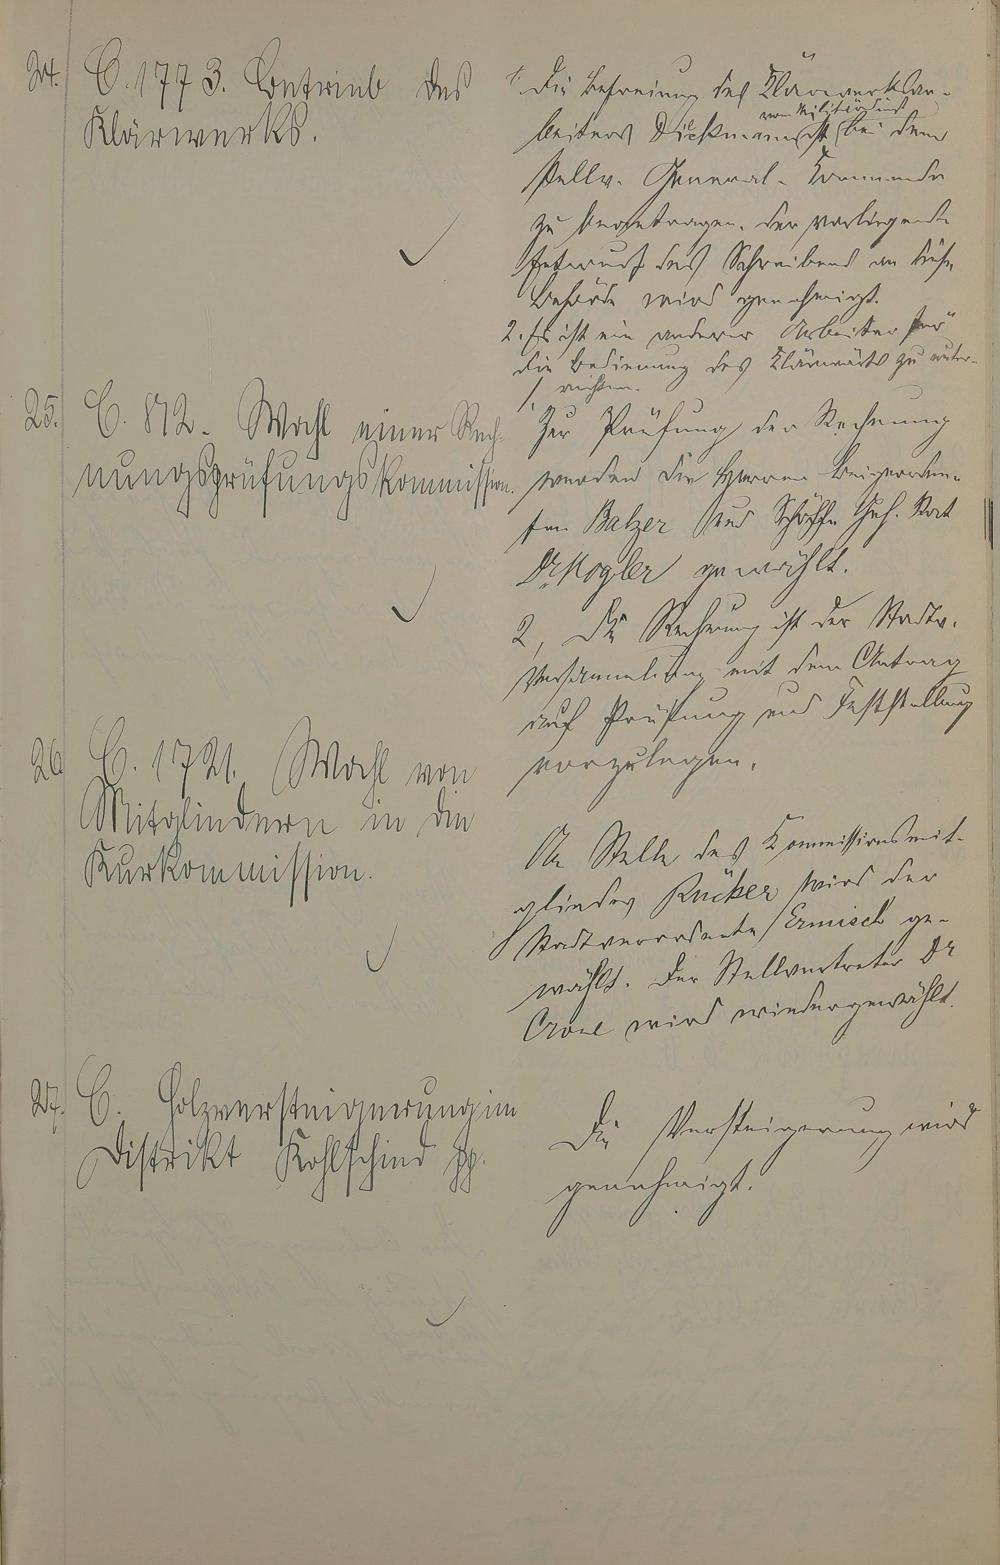 24. C. 1773. Betrieb des
Klärwerks.
1. Die Befreiung des Klärwerksar-
vom Militärdienst
beiters Dickmann ist bei dem
stellv. General-Kommando
zu beantragen. Der vorliegende
Entwurf des Schreibens an diese
Behörde wird genehmigt.
2. Es ist ein anderer Arbeiter für
die Bedienung des Klärwerks zu unter-
richten.
25. C. 812. Wahl einer Rech-
nungsprüfungskommission.
1, Zur Prüfung der Rechnung
werden die Herren Beigeordne-
ten Balzer und Schöffe Geh. Rat
Dr. Kogler gewählt.
2, Die Rechnung ist der Stadtv.
Versammlung mit dem Antrag
auf Prüfung und Feststellung
vorzulegen.
26. C. 1721. Wahl von
Mitgliedern in die
Kurkommission.
An Stelle des Kommissionsmit-
gliedes Rücker wird der
Stadtverordnete Ermisch ge-
wählt. Der Stellvertreter Dr
Crone wird wiedergewählt.
27. C. Holzversteigerung im
Distrikt Kohlschied pp.
Die Versteigerung wird
genehmigt.